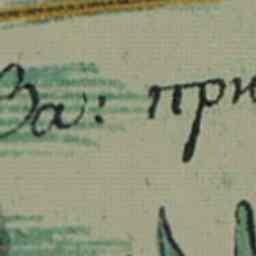 За: при